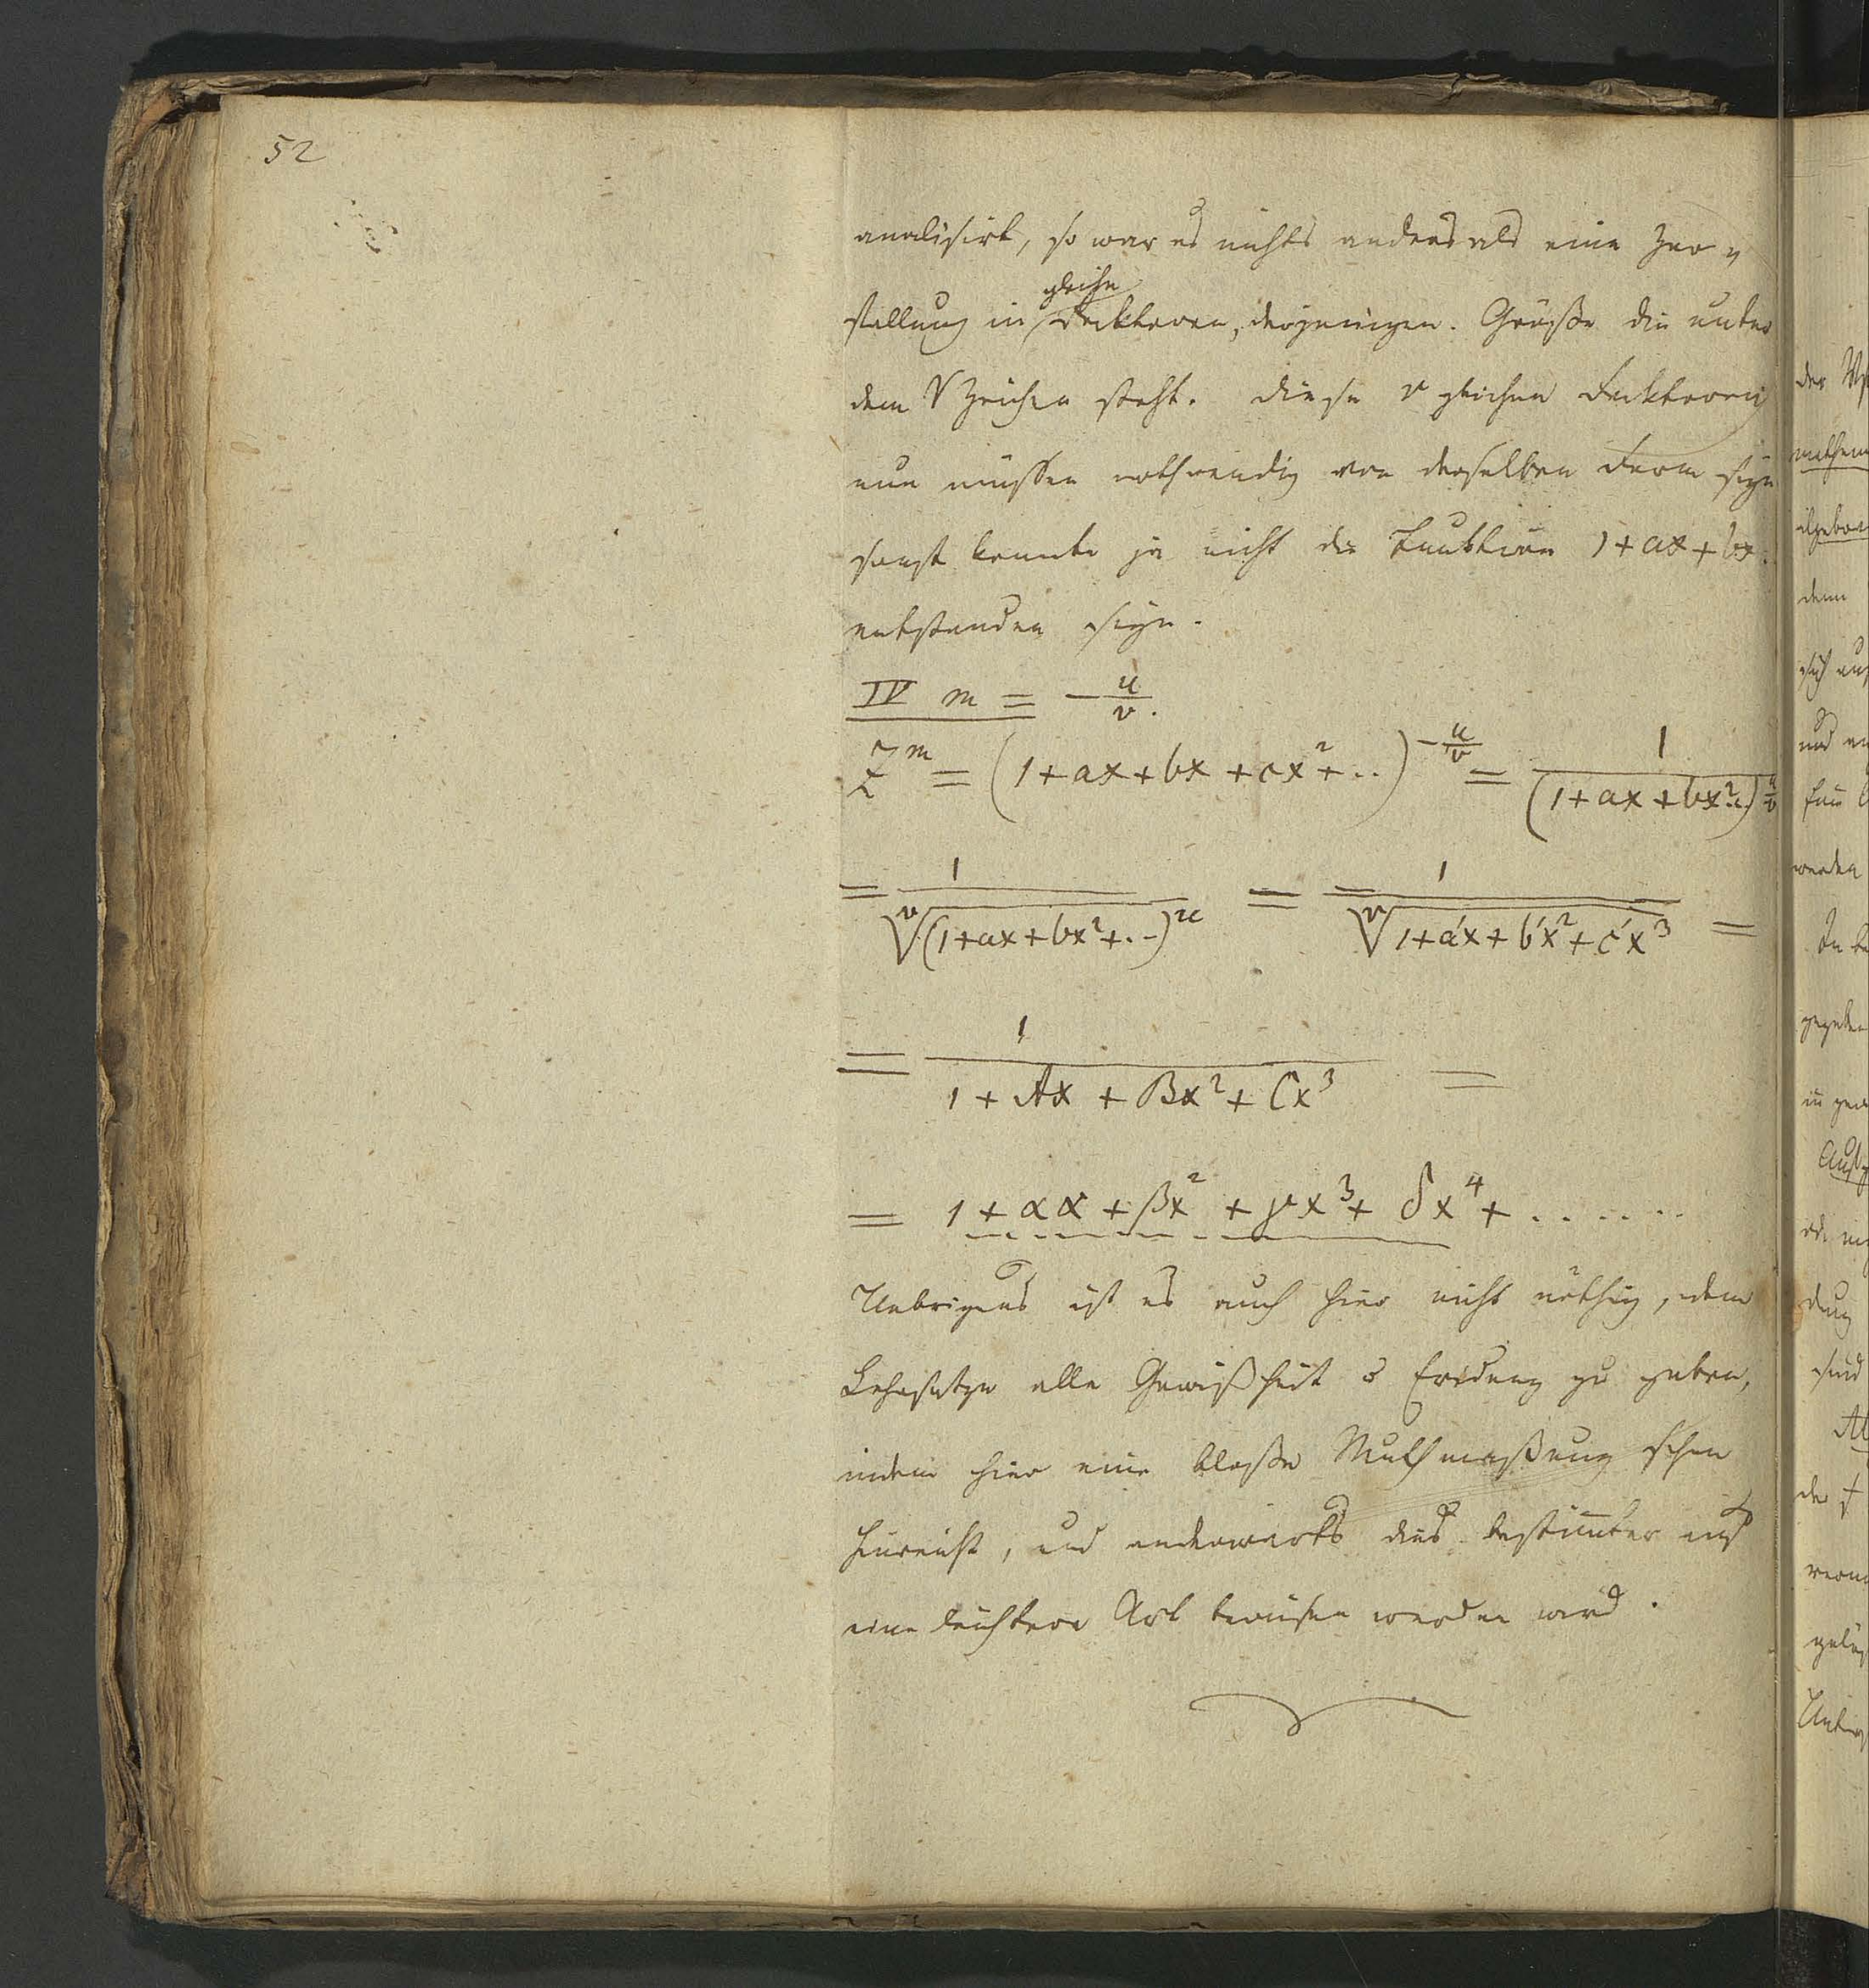 52
analisirt, so war es nichts anders als eine Zer=
gleiche
fellung in Faktoren, derjenigen. Größe die unter
dem √ Zeichen steht. Diese v gleichen Faktoren
nun müssen nothwendig von derselben Form seyn
sonst konnte ja nicht die Funktion 1+ax+bx.
entstanden seyn.
IV m = -u/v.
Z^m = (1+ax+bx+cx²+..)^{-u/v} = 1/(1+ax+bx²..)^{u/v}
= 1/ᵛ√(1+ax+bx²+..)^u = 1/ᵛ√1+a'x+b'x²+c'x³ =
= 1/1+Ax+Bx²+Cx³ =
= 1+αx+βx²+γx³+δx⁴+......
Uebrigens ist es auch hier nicht nöthig, dem
Lehrsatze alle Gewißheit zu geben,
indem hier eine bloße Muthmaßung schon
hinreicht, und anderwärts dies bestimmter auf
eine leichtere Art bewiesen werden wird.